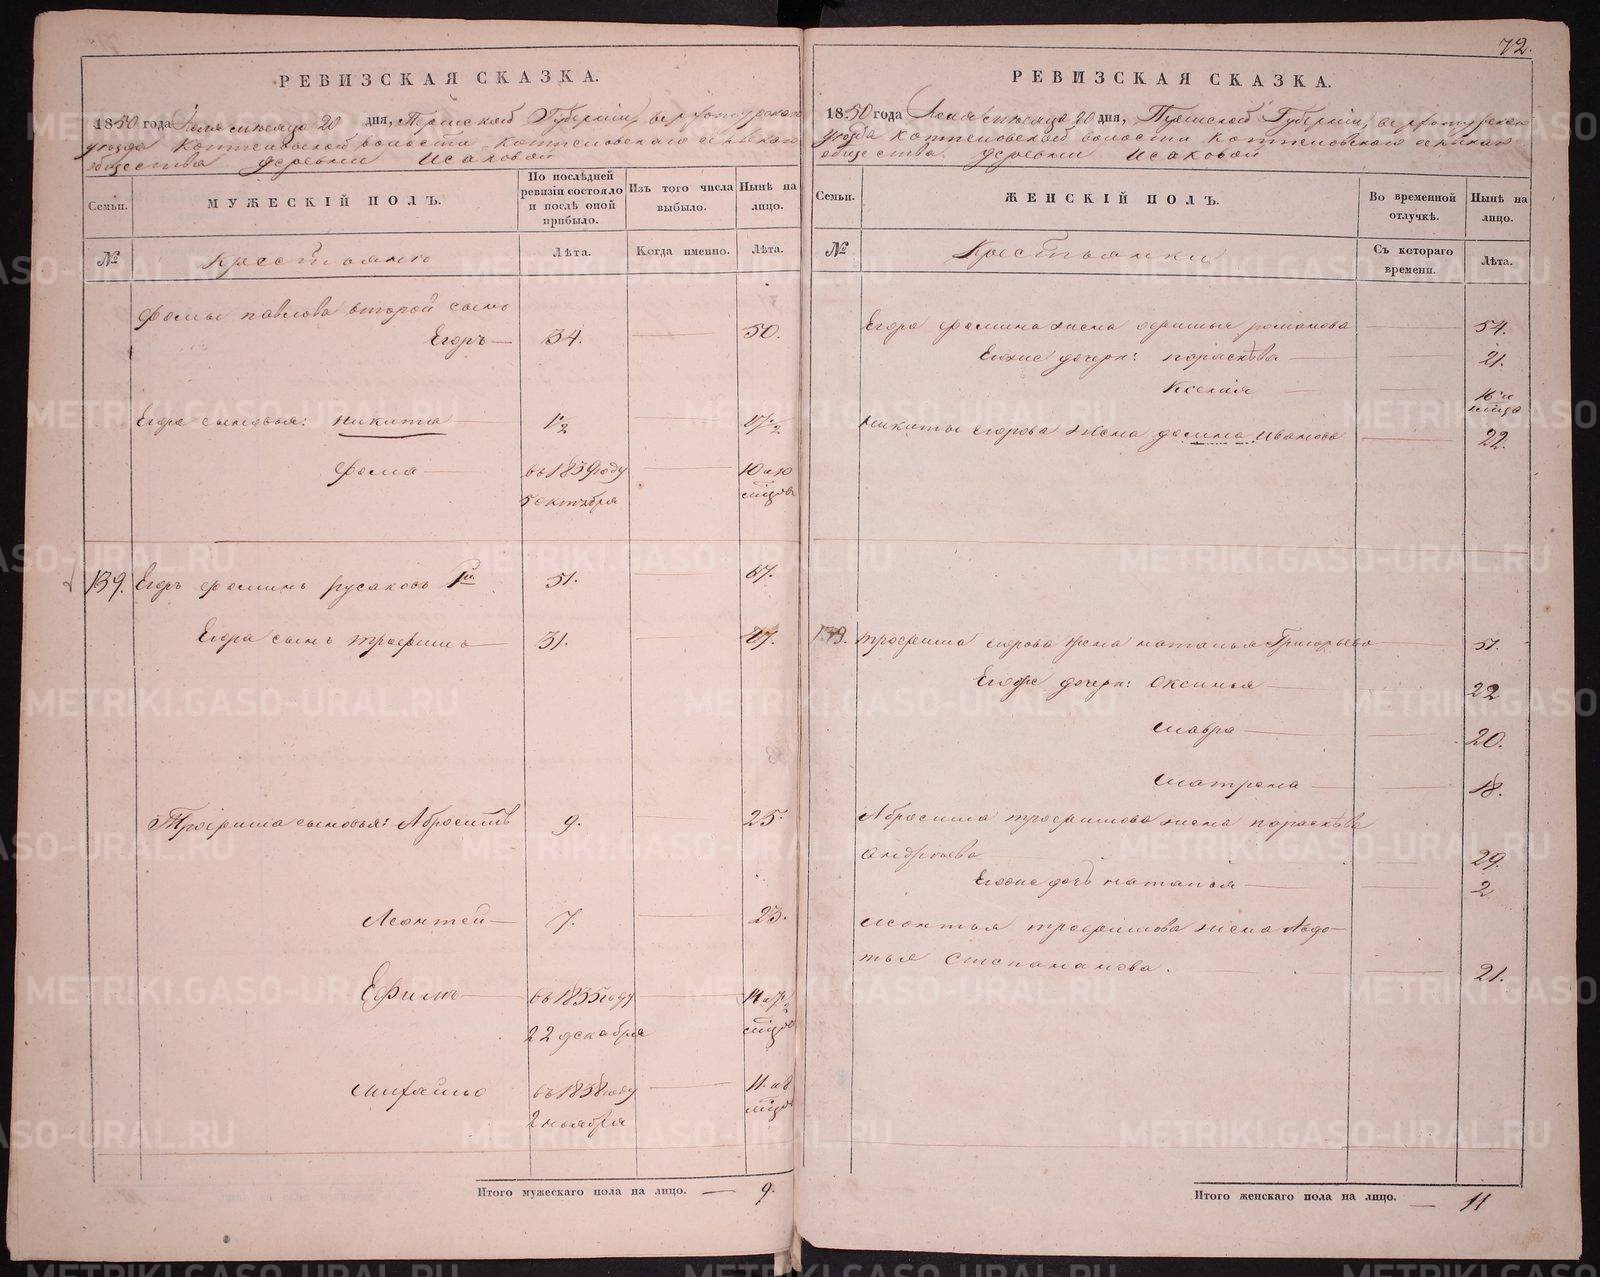 РЕВИЗСКАЯ СКАЗКА.
1850 года Июля месяца 20 дня, Пермской Губернии, верхотурскаго
уезда Коптеловской волости Коптеловскаго сельскаго
общества деревни Исаковой
Семьи.
МУЖЕСКІЙ ПОЛЪ.
По послѣдней ревизіи состояло и послѣ оной прибыло.
Изъ того числа выбыло.
Нынѣ на лицо.
№
Крестьяне
Лѣта.
Когда именно.
Лѣта.
Фомы павлова второй сынъ
Егоръ — 34. — 50.
Егора сыновья: никита — 1 1/2 — 17 1/2
Фома — въ 1839 году — 10 и 10
5 октября мѣсяцовъ
139. Егоръ фоминъ русаковъ 1й 51. — 67.
Егора сынъ трофимъ — 31. — 47.
Трофима сыновья: Абросимъ 9. — 25.
Леонтей — 7. — 23.
Ефимъ — въ 1835 году — 14 и 7 1/2
22 декабря мѣсяцовъ
михайло въ 1838 году — 11. и 8
2 ноября мѣсяцовъ
Итого мужескаго пола на лицо. — 9.
72.
РЕВИЗСКАЯ СКАЗКА.
1850 года Июля месяца 20 дня, Пермской Губернии, верхотурскаго
уезда коптеловской волости коптеловскаго сельскаго
общества деревни Исаковой
Семьи.
ЖЕНСКІЙ ПОЛЪ.
Во временной отлучкѣ.
Нынѣ на лицо.
№
Крестьянки
Съ котораго времени.
Лѣта.
Егора фомина жена офимья романова 54.
Егоже дочери: параскѣва — 21.
Ксенія —
никиты егорова жена домна иванова — 22.
139. трофима егорова жена наталья Григорьева — 51.
Егоже дочери: Оксинья — 22
мавра — 20.
матрена — 18.
Абросима трофимова жена параскѣва
андрѣева — 29.
Егоже дочь наталья — 2
леонтья трофимова жена Авдо-
тья Степанова. — 21.
Итого женскаго пола на лицо. — 11
METRIKI.GASO-URAL.RU